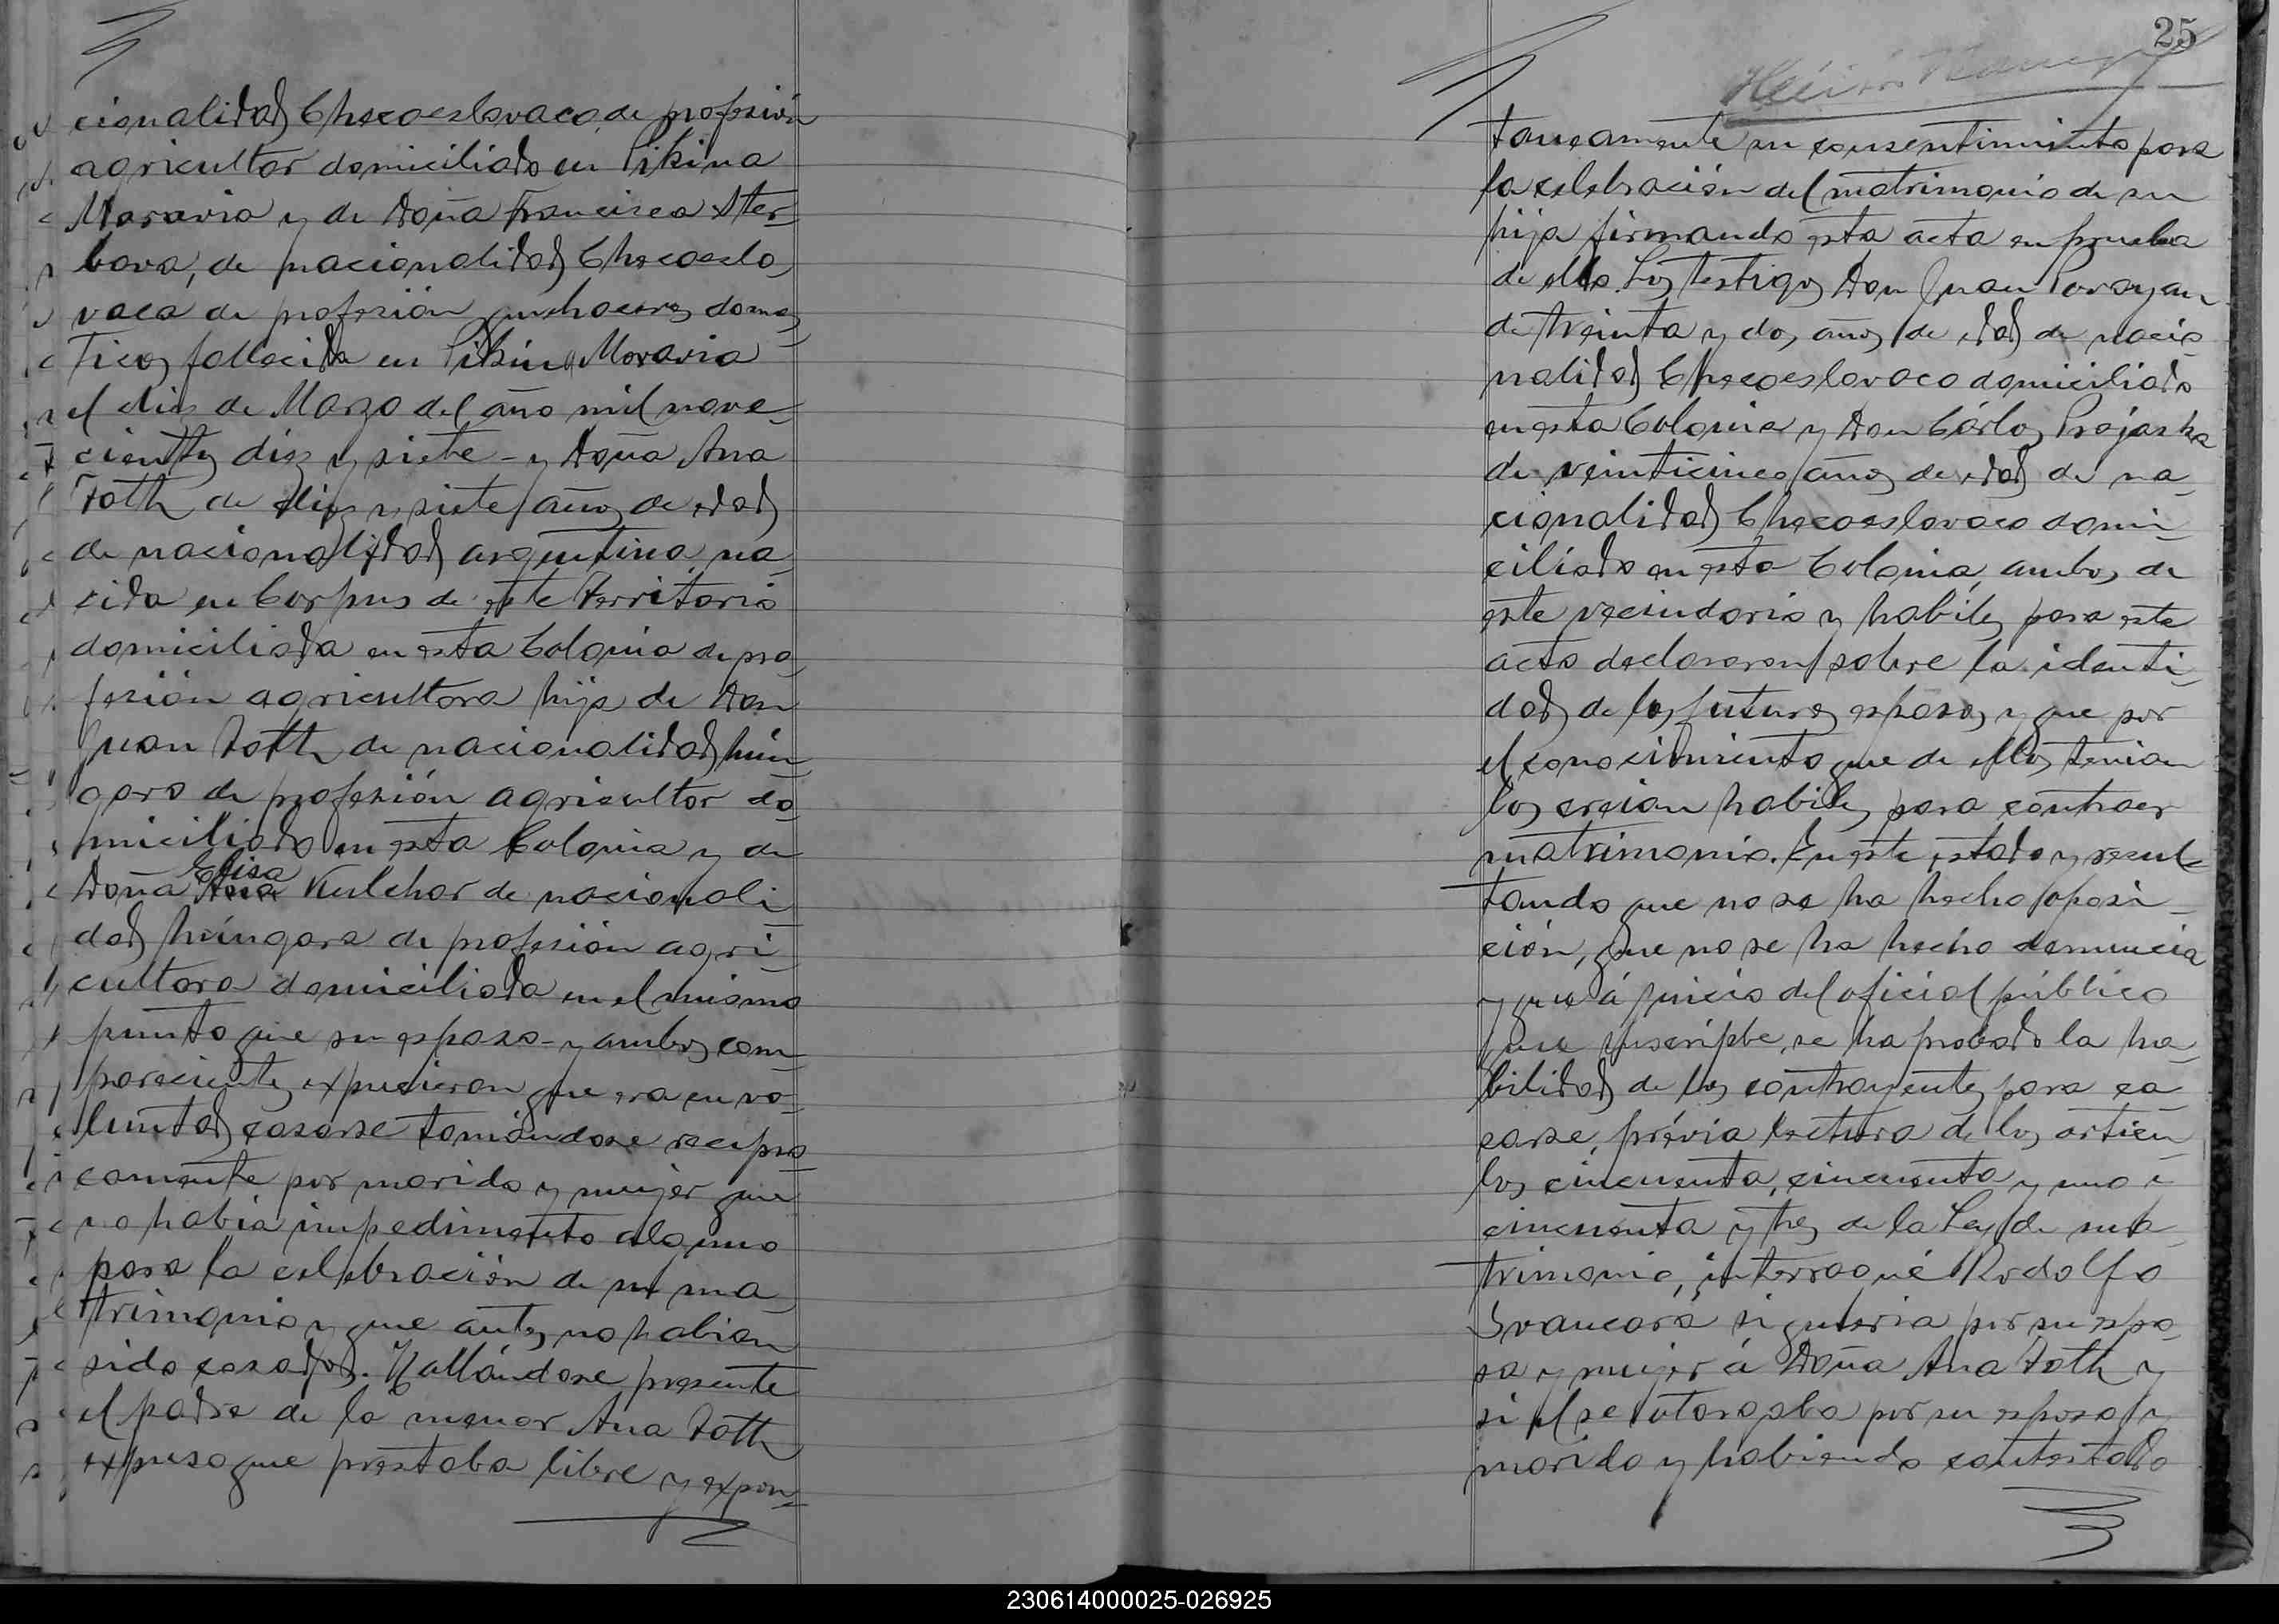 cionalidad Checoeslovaco, de profesión
agricultor domiciliado en Pikina
Moravia y de Doña Francisca Ster-
bova, de nacionalidad Checoeslo-
vaca de profesión quehaceres domes
ticos, fallecida en Pikina Moravia
el diez de Marzo del año mil nove-
cientos diez y siete - y Doña Ana
Toth de diez y siete años de edad
de nacionalidad argentina, na-
cida en Corpus de este Territorio
domiciliada en esta Colonia de pro-
fesión agricultora hija de Don
Juan Toth de nacionalidad hún-
garo de profesión agricultor do-
miciliado en esta Colonia y de
Elisa
Doña Ana Kulchar de nacionali-
dad húngara de profesión agri-
cultora domiciliada en el mismo
punto que su esposo - y ambos com-
parecientes expusieron que era su vo-
luntad casarse tomándose recipro-
camente por marido y mujer que
no había impedimento alguno
para la celebración de su ma-
trimonio y que antes no habian
sido casados. Hallándose presente
el padre de la menor Ana Toth
expuso que prestaba libre y expon-
25
taneamente su consentimiento para
la celebración del matrimonio de su
hija firmando esta acta en prueba
de ello. Los testigos Don Juan
de treinta y dos años de edad de nacio-
nalidad Checoeslovaco domiciliado
en esta Colonia y Don Cárlos Projaska
de veinticinco años de edad de na-
cionalidad Checoeslovaco domi-
ciliado en esta Colonia, ambos de
este vecindario y habiles para este
acto declararon sobre la identi-
dad de los futuros esposos, y que por
el conocimiento que de ellos tenian
los creian habiles para contraer
matrimonio. En este estado y resul-
tando que no se ha hecho oposi-
ción, que no se ha hecho denuncia
y que á juicio del oficial público
que suscripbe, se ha probado la ha-
bilidad de los contrayentes para ca-
sarse, prévia lectura de los articu-
los cincuenta, cincuenta y uno i
cincuenta y tres de la Ley de ma-
trimonio, interrogué Rodolfo
Svancara si queria por su espo-
sa y mujer á Doña Ana Toth y
si el se otorgaba por su esposo y
marido y habiendo contestado
230614000025-026925